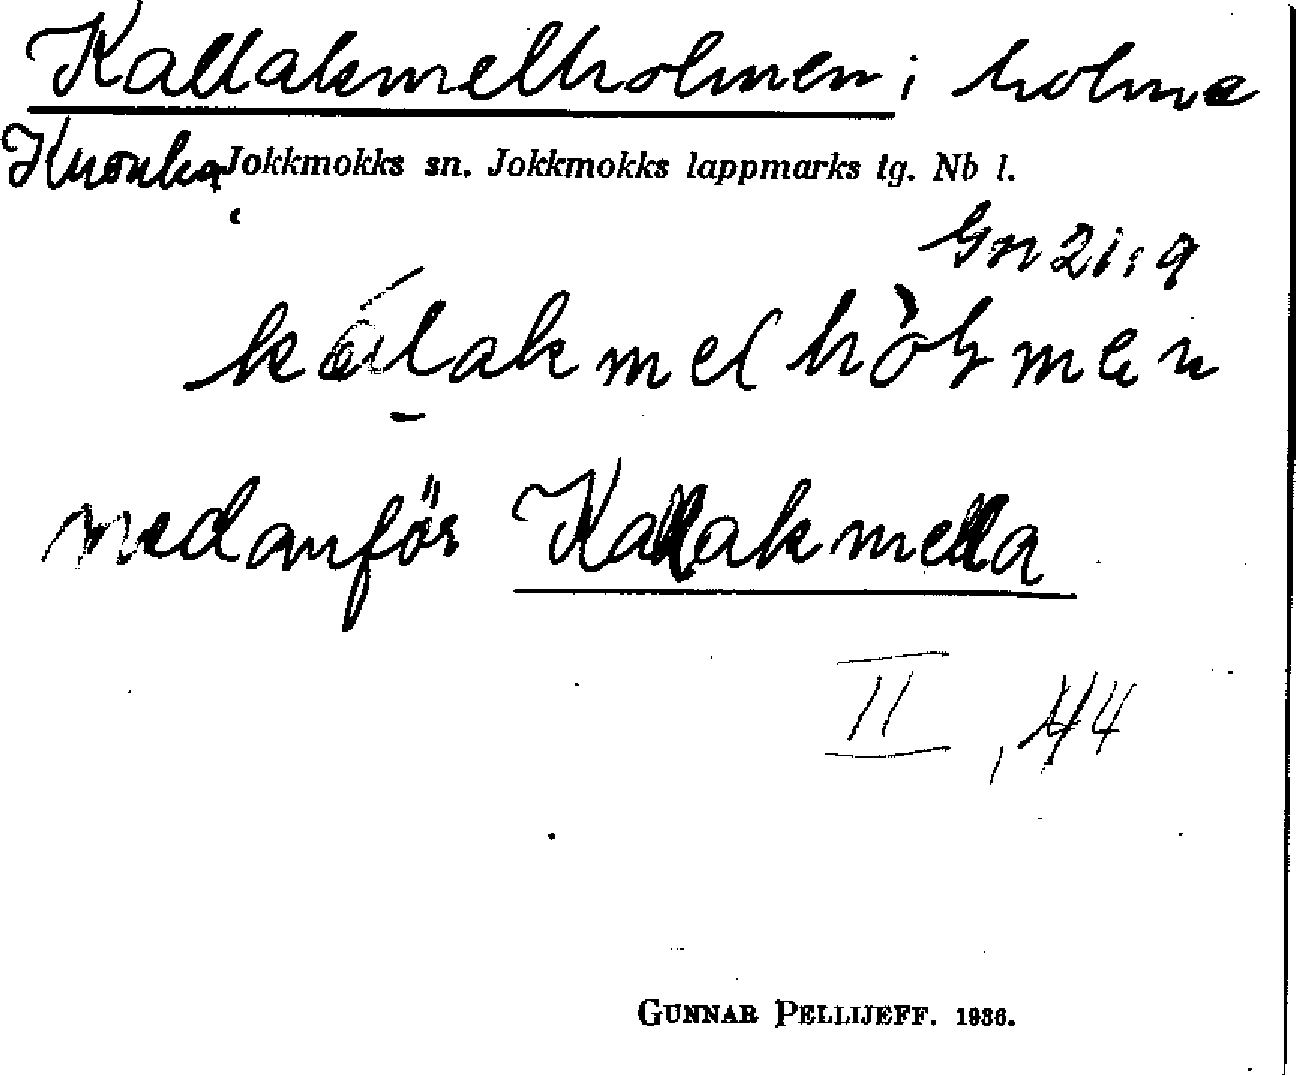 Kallakmelholmen i holme
Kuouka Jokkmokks sn. Jokkmokks lappmarks tg. Nb l.
Gn 21:9
kálakmelhòlmen
nedanför Kallakmella
II, 44
GUNNAR PELLIJEFF. 1936.